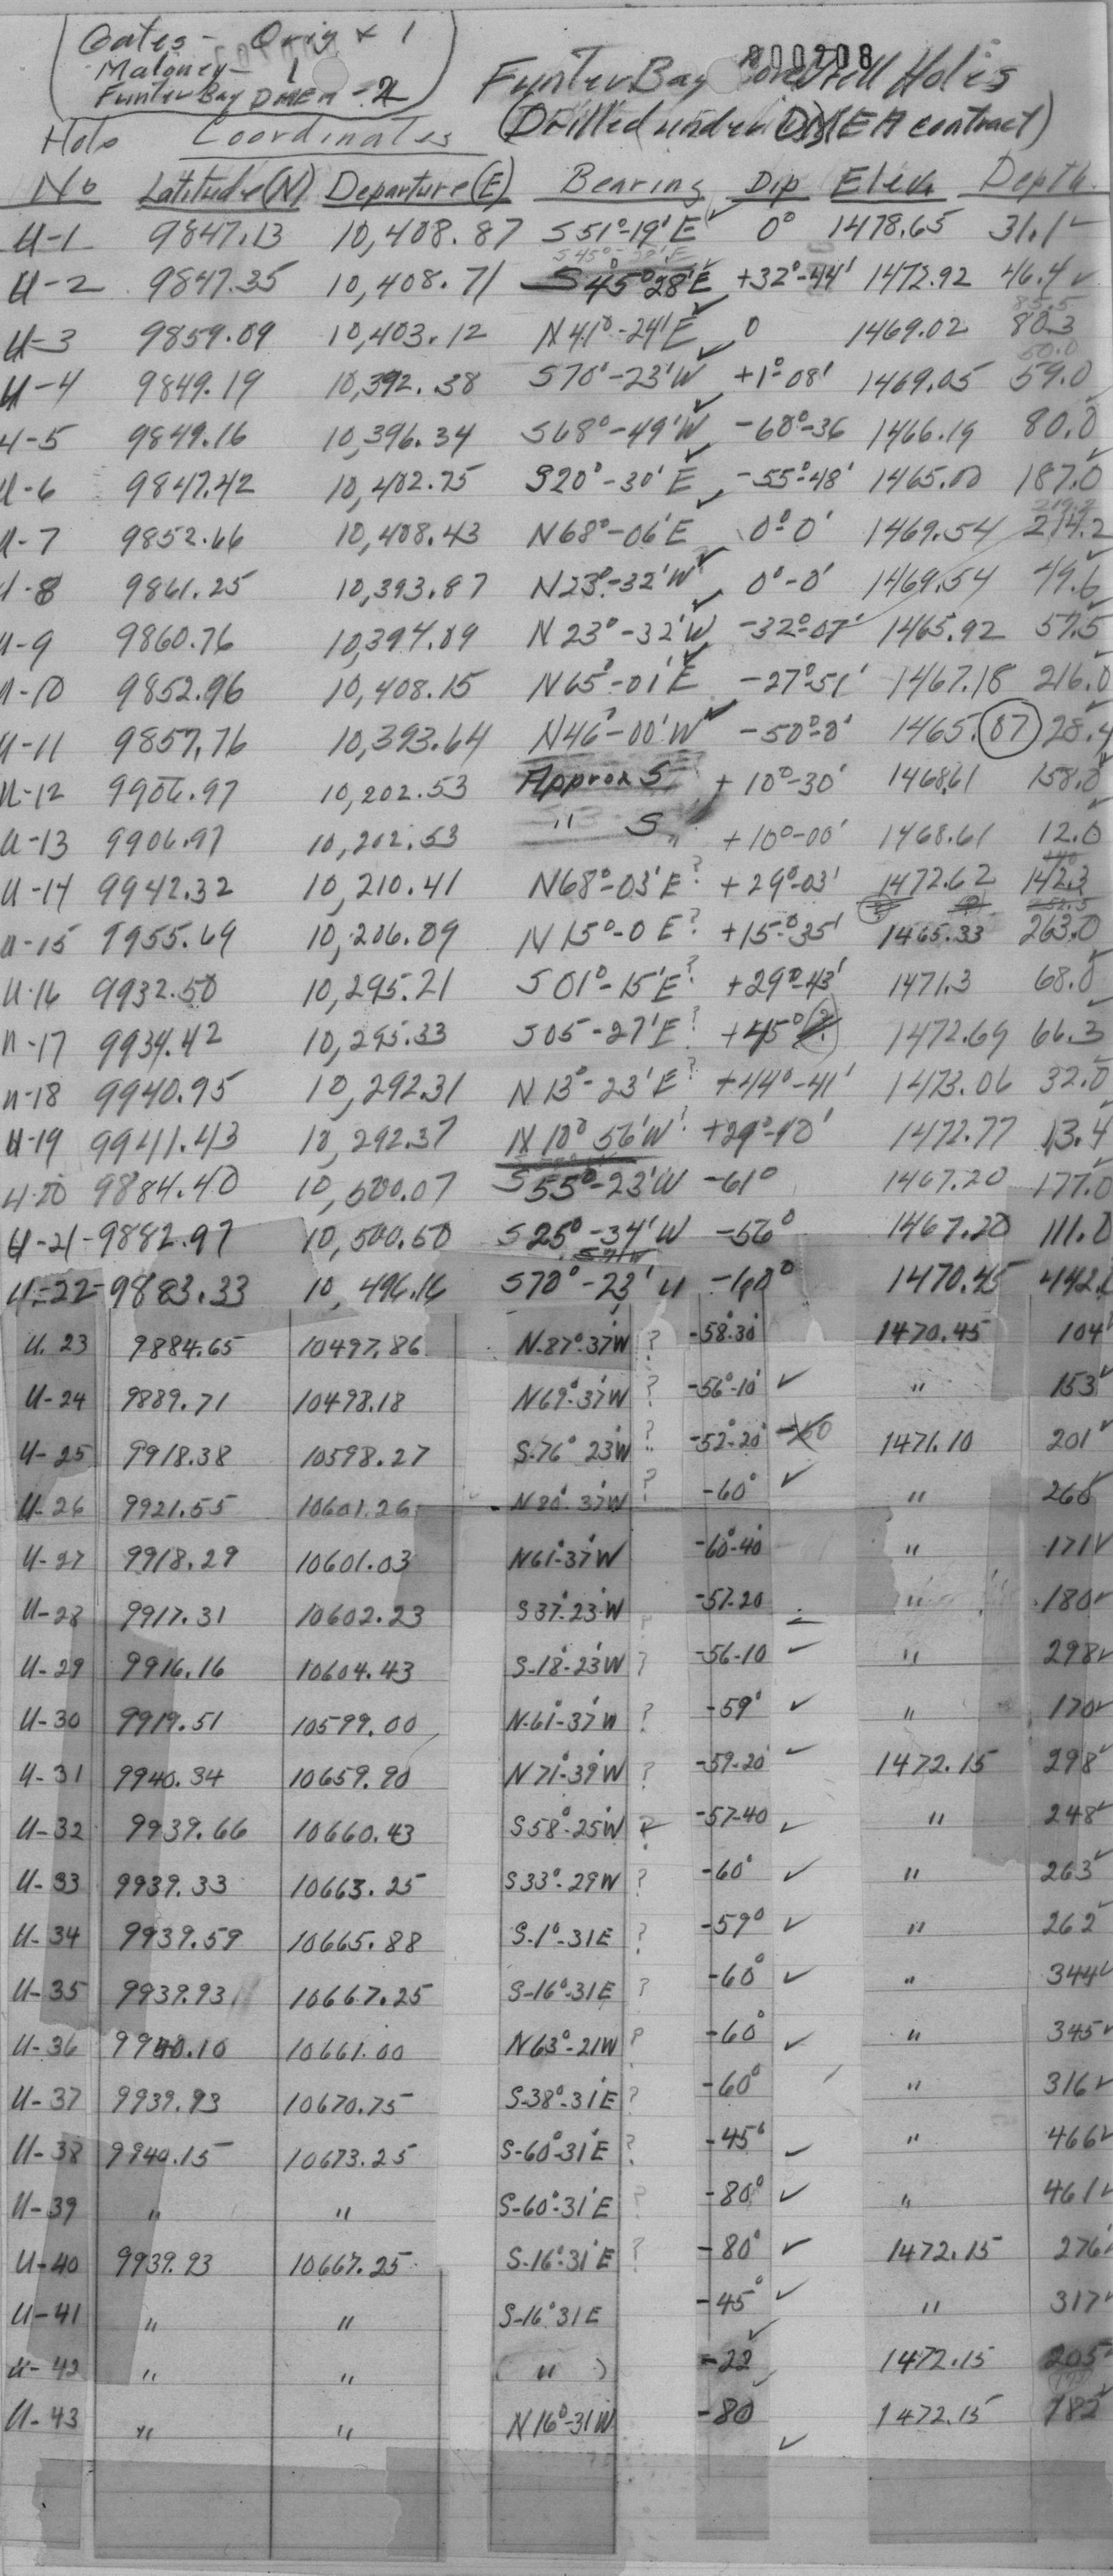 Coates - Orig + 1
Maloney - 1
Funter Bay DMEA - 2
000208
Funter Bay Core Drill Holes
(Drilled under DMEA contract)
Hole Coordinates
No Latitude (N) Departure (E) Bearing Dip Elev. Depth
U-1 9847.13 10,408.87 S51°-19'E ✓ 0° 1478.65 31.1 ✓
U-2 9847.35 10,408.71 S45°28'E ✓ +32°-44' 1472.92 46.4 ✓
U-3 9859.09 10,403.12 N41°-24'E ✓ 0 1469.02 80.3
U-4 9849.19 10,392.38 S70°-23'W ✓ +1°-08' 1469.05 59.0
U-5 9849.16 10,396.34 S68°-49'W ✓ -60°-36 1466.19 80.0
U-6 9847.42 10,402.75 S20°-30'E ✓ -55°-48' 1465.00 187.0
U-7 9852.66 10,408.43 N68°-06'E 0°-0' 1469.54 214.2
U-8 9861.25 10,393.87 N23°-32'W ✓ 0°-0' 1469.54 49.6
U-9 9860.76 10,394.09 N23°-32'W ✓ -32°-07' 1465.92 57.5
U-10 9852.96 10,408.15 N65°-01'E ✓ -27°-51' 1467.18 216.0
U-11 9857.76 10,393.64 N46°-00'W ✓ -50°-0' 1465.07 28.4
U-12 9906.97 10,202.53 Approx S +10°-30' 1468.61 158.0
U-13 9906.97 10,202.53 " S +10°-00' 1468.61 12.0
U-14 9942.32 10,210.41 N68°-03'E ? +29°-03' 1472.62 142.3
U-15 9955.69 10,206.09 N15°-0 E ? +15°-35' 1465.33 263.0
U-16 9932.50 10,295.21 S01°-15'E ? +29°-43' 1471.3 68.0
U-17 9934.42 10,295.33 S05-27'E ? +45° (?) 1472.69 66.3
U-18 9940.95 10,292.31 N13°-23'E ? +44°-41' 1473.06 32.0
U-19 9941.43 10,292.37 N10°56'W ? +29°-10' 1472.77 13.4
U-20 9884.40 10,500.07 S55°-23'W -61° 1467.20 177.0
U-21 - 9882.97 10,500.50 S25°-34'W -56° 1467.20 111.0
U-22 - 9883.33 10,496.16 S70°-23' W -60° 1470.45 442.
U-23 9884.65 10497.86 N-87°-37'W ? -58°-30' 1470.45 104 ✓
U-24 9889.71 10498.18 N69°-37'W ? -56°-10' ✓ " 153 ✓
U-25 9918.38 10598.27 S-76° 23'W ? -52°-20' -60 1471.10 201 ✓
U-26 9921.55 10601.26 N80°-37'W ? -60° ✓ " 265
U-27 9918.29 10601.03 N61°-37'W -60°-40' " 171 ✓
U-28 9917.31 10602.23 S37°-23'W -57-20 " 180 ✓
U-29 9916.16 10604.43 S-18°-23'W ? -56-10 ✓ " 298 ✓
U-30 9919.51 10599.00 N-61°-37'W ? -59° ✓ " 170 ✓
U-31 9940.34 10659.90 N71°-39'W ? -59-20 ✓ 1472.15 298 ✓
U-32 9939.66 10660.43 S58°-25'W ? -57-40 ✓ " 248 ✓
U-33 9939.33 10663.25 S33°-29W ? -60° ✓ " 263 ✓
U-34 9939.59 10665.88 S-1°-31E ? -59° ✓ " 262 ✓
U-35 9939.93 10667.25 S-16°-31E ? -60° ✓ " 344 ✓
U-36 9940.10 10661.00 N63°-21W ? -60° ✓ " 345 ✓
U-37 9939.93 10670.75 S-38°-31'E ? -60° " 316 ✓
U-38 9940.15 10673.25 S-60°-31'E ? -45° ✓ " 466 ✓
U-39 " " S-60°-31'E ? -80° ✓ " 461 ✓
U-40 9939.93 10667.25 S-16°-31'E ? -80° ✓ 1472.15 276 ✓
U-41 " " S-16°31E -45° ✓ " 317 ✓
U-42 " " ( " ) -22 ✓ 1472.15 205
U-43 " " N16°-31W -80 ✓ 1472.15 182 ✓